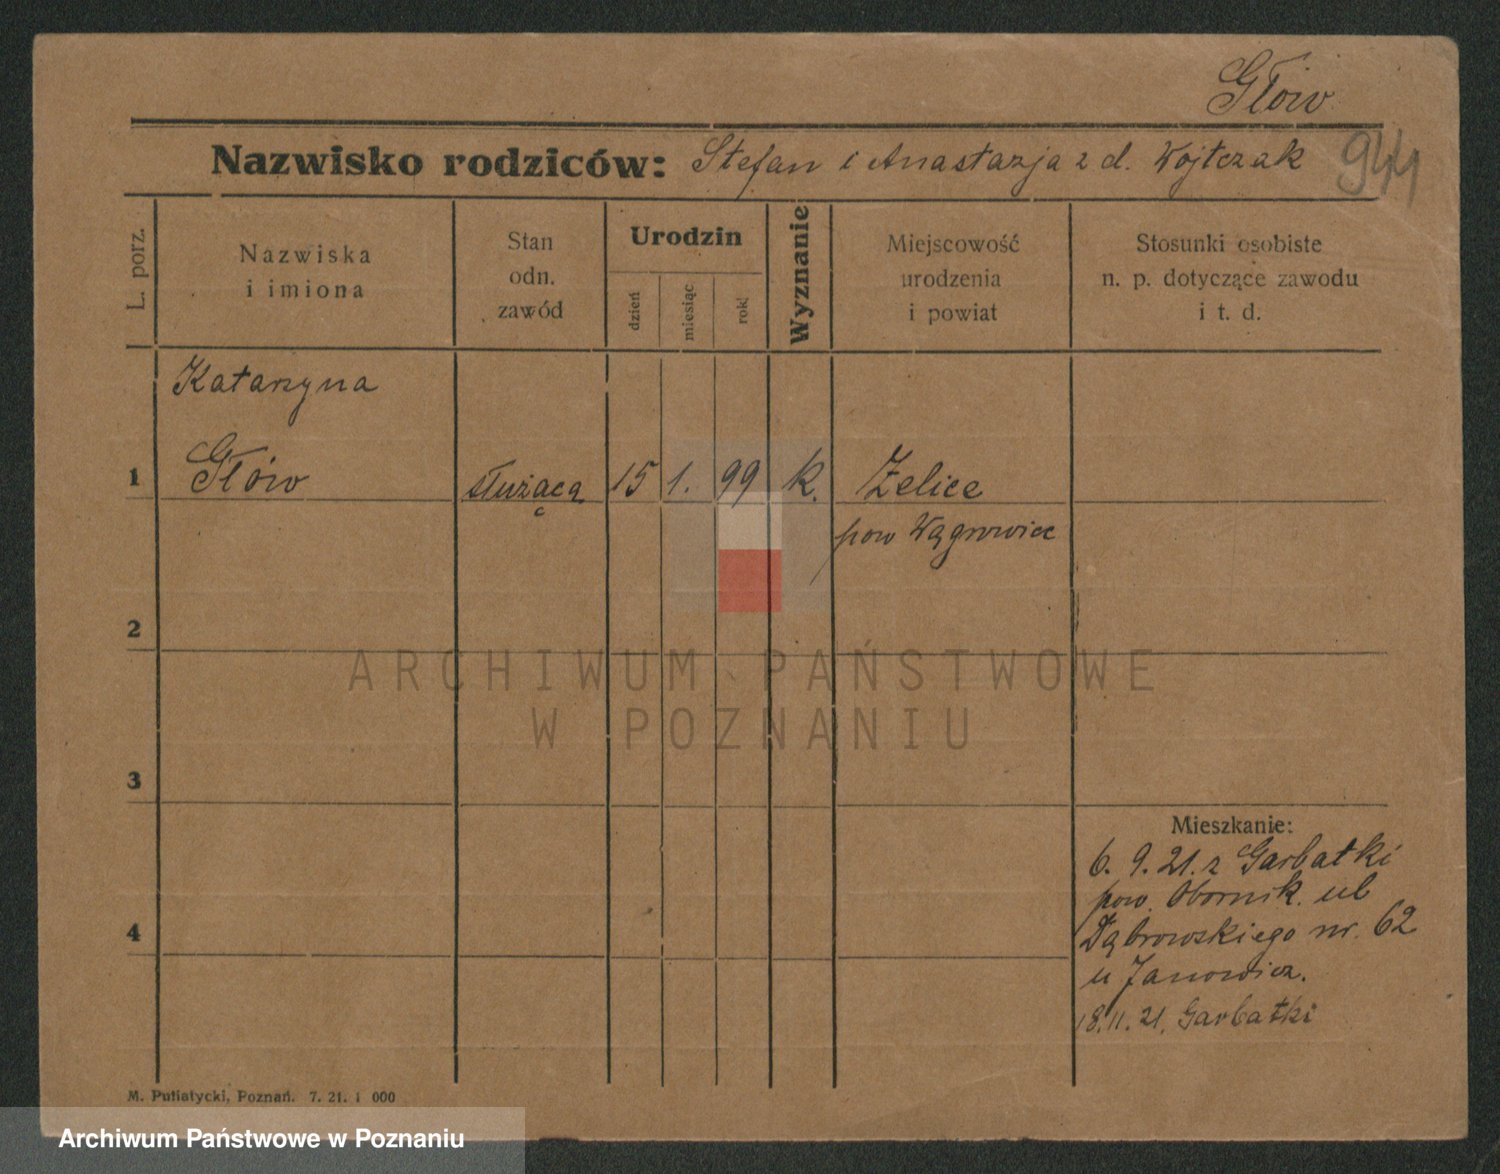 Głow
Nazwisko rodziców: Stefan i Anastazja z d. Wojtczak
944
L. porz.
Nazwiska
i imiona
Stan
odn.
zawód
Urodzin
dzień
miesiąc
rok
Wyznanie
Miejscowość
urodzenia
i powiat
Stosunki osobiste
n. p. dotyczące zawodu
i t. d.
Katarzyna
1 Głów służąca 15 1. 99 k. Żelice
pow Wągrowiec
2
ARCHIWUM PAŃSTWOWE
W POZNANIU
3
Mieszkanie:
6. 9. 21. z Garbatki
pow. Obornik. ul
4
Dąbrowskiego nr. 62
u Janowicz.
18. 11. 21. Garbatki
M. Putiatycki, Poznań. 7. 21. 1 000
Archiwum Państwowe w Poznaniu